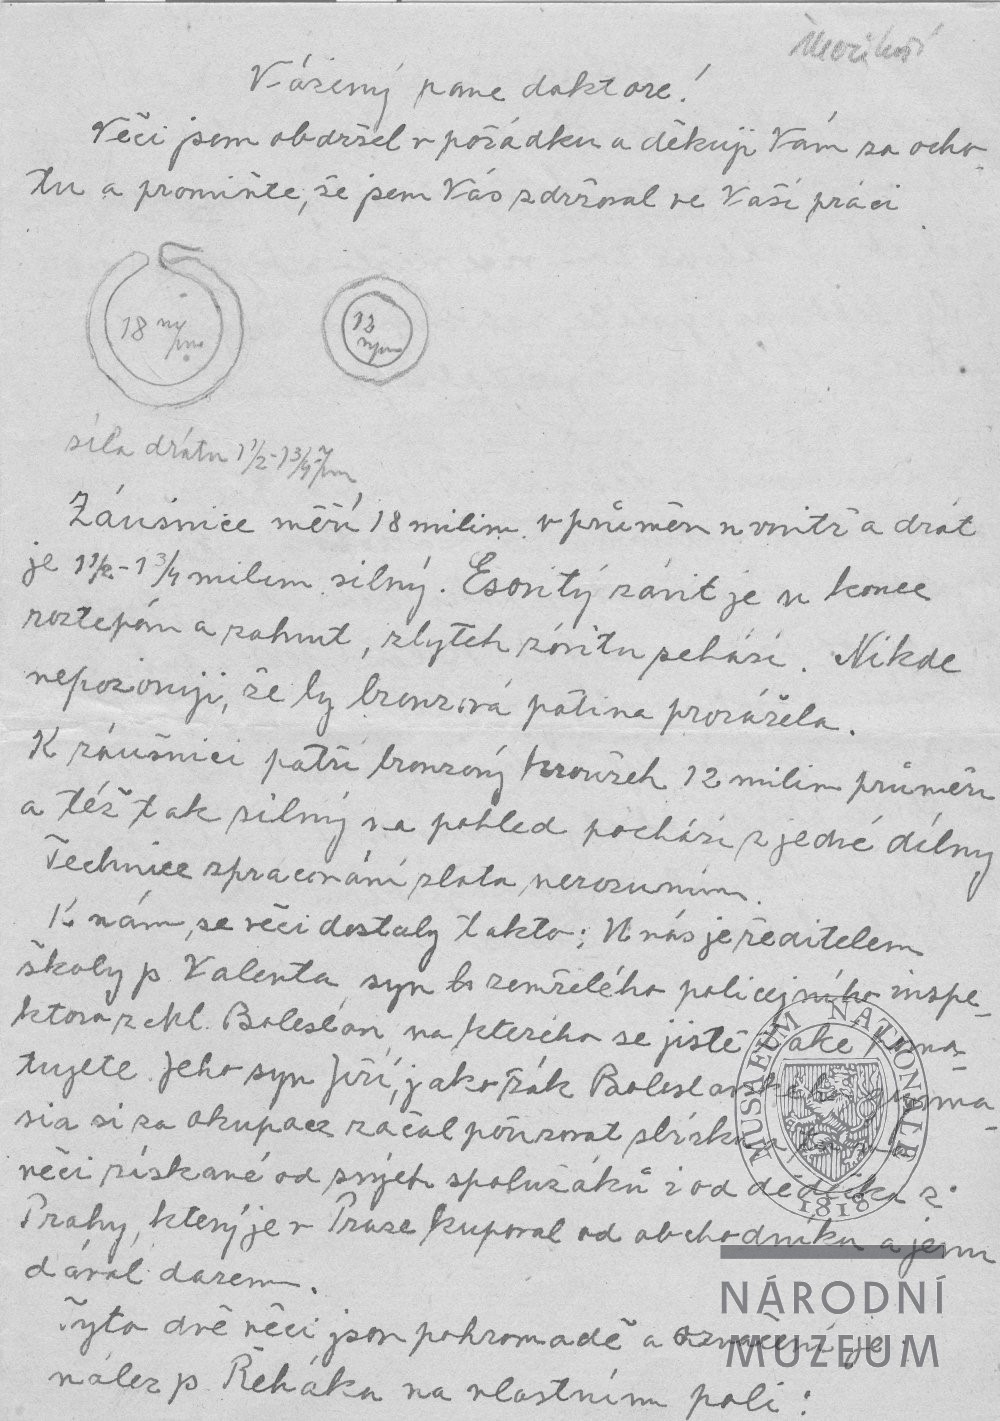 Vážený pane doktore!
Věci jsem obdržel v pořádku a děkuji Vám za ocho-
tu a promiňte, že jsem Vás zdržoval ve Vaší práci
18 m/m
12 m/m
síla drátu 1 1/2 - 1 3/4 m/m
Záušnice měří 18 milim. v průměru u vnitř a drát
je 1 1/2 - 1 3/4 milim silný. Esovitý závit je u konce
roztepán a zahnut, zbytek závitu schází. Nikde
nepozoruji, že by bronzová patina prozářela.
K záušnici patří bronzový kroužek 12 milim průměru
a též tak silný na pohled pochází z jedné dílny
Technice zpracování zlata nerozumím.
K nám, se věci dostaly takto: U nás je ředitelem
školy p Valenta syn zemřelého policejního inspe-
ktora z Ml. Boleslavi, na kterého se jistě také pama-
tujete. Jeho syn Jiří, jako žák Boleslavského gymna-
sia si za okupace začal pořizovat sbírku
věci získané od svých spolužáků i od dědečka z
Prahy, který je v Praze kupoval od obchodníku a jemu
dával darem.
Tyto dvě věci jsou pohromadě a označení je:
nález p. Řeháka na vlastním poli:
MUSEUM NATIONALE
1818
NÁRODNÍ
MUZEUM